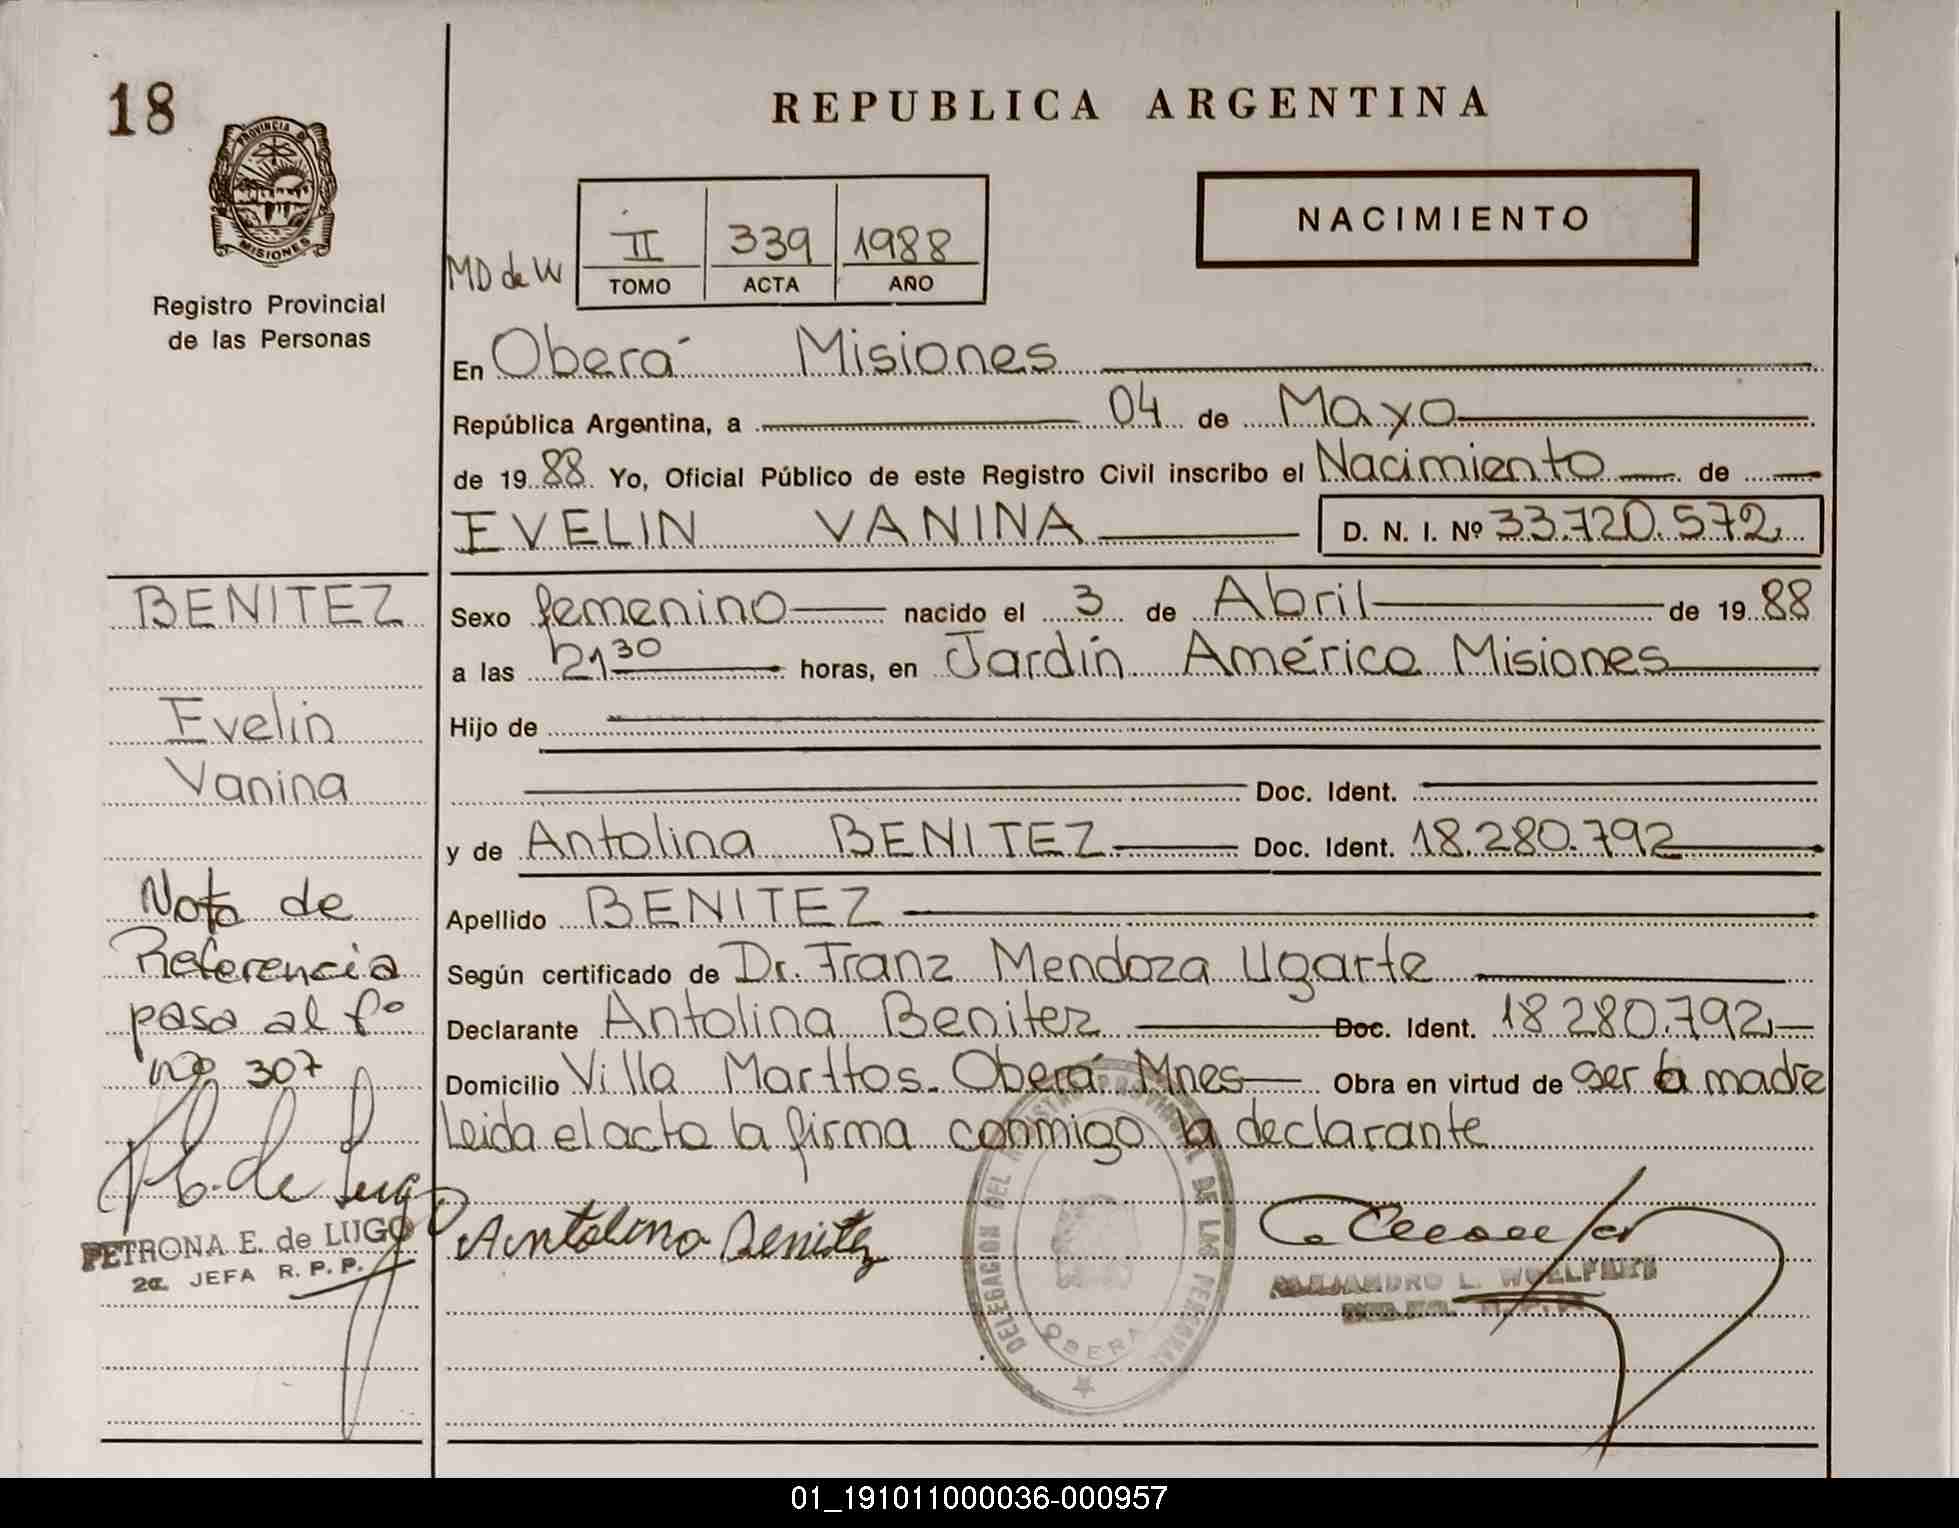 18
PROVINCIA DE
MISIONES
Registro Provincial
de las Personas
REPUBLICA ARGENTINA
NACIMIENTO
MD de W
II 339 1988
TOMO ACTA AÑO
En Oberá Misiones
República Argentina, a 04 de Mayo
de 1988 Yo, Oficial Público de este Registro Civil inscribo el Nacimiento de
EVELIN VANINA D. N. I. Nº 33.720.572
Sexo femenino nacido el 3 de Abril de 1988
a las 21 30 horas, en Jardín América Misiones
Hijo de
Doc. Ident.
y de Antolina BENITEZ Doc. Ident. 18.280.792
Apellido BENITEZ
Según certificado de Dr. Franz Mendoza Ugarte
Declarante Antolina Benitez Doc. Ident. 18.280.792
Domicilio Villa Marttos. Oberá Mnes Obra en virtud de ser la madre
Leida el acto la firma conmigo la declarante
BENITEZ
Evelin
Vanina
Nota de
Referencia
pasa al fº
nº 307
PETRONA E. de LUGO
2a. JEFA R. P. P.
Antolina Benitez
DELEGACION DEL REGISTRO PROVINCIAL DE LAS PERSONAS
OBERA
ALEJANDRO L.
01_191011000036-000957